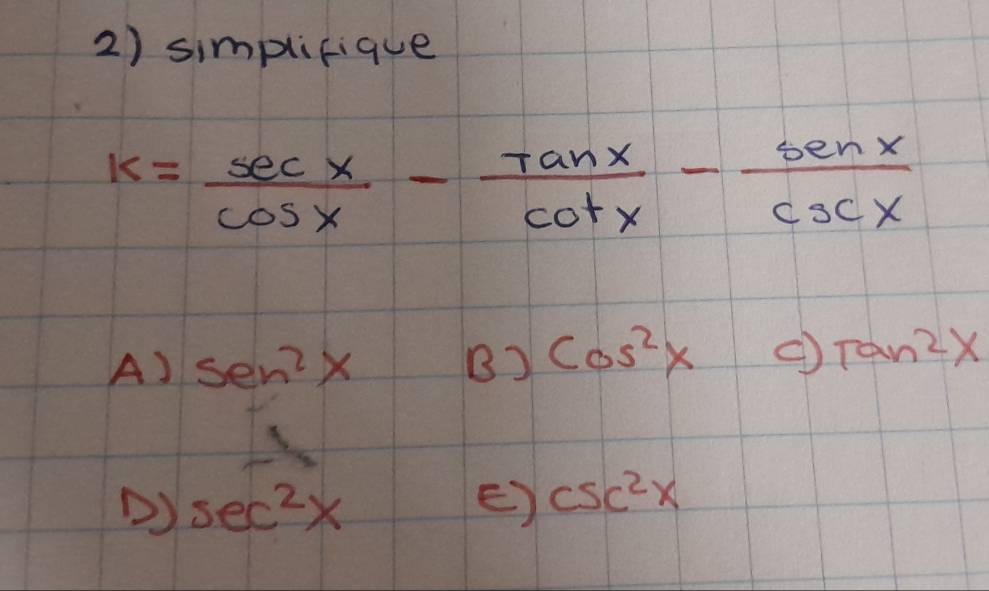 2) simplifique
K = sec x / cos x - Tan x / cot x - sen x / csc x
A) sen²x B) Cos²x C) Tan²x
D) sec²x E) csc²x